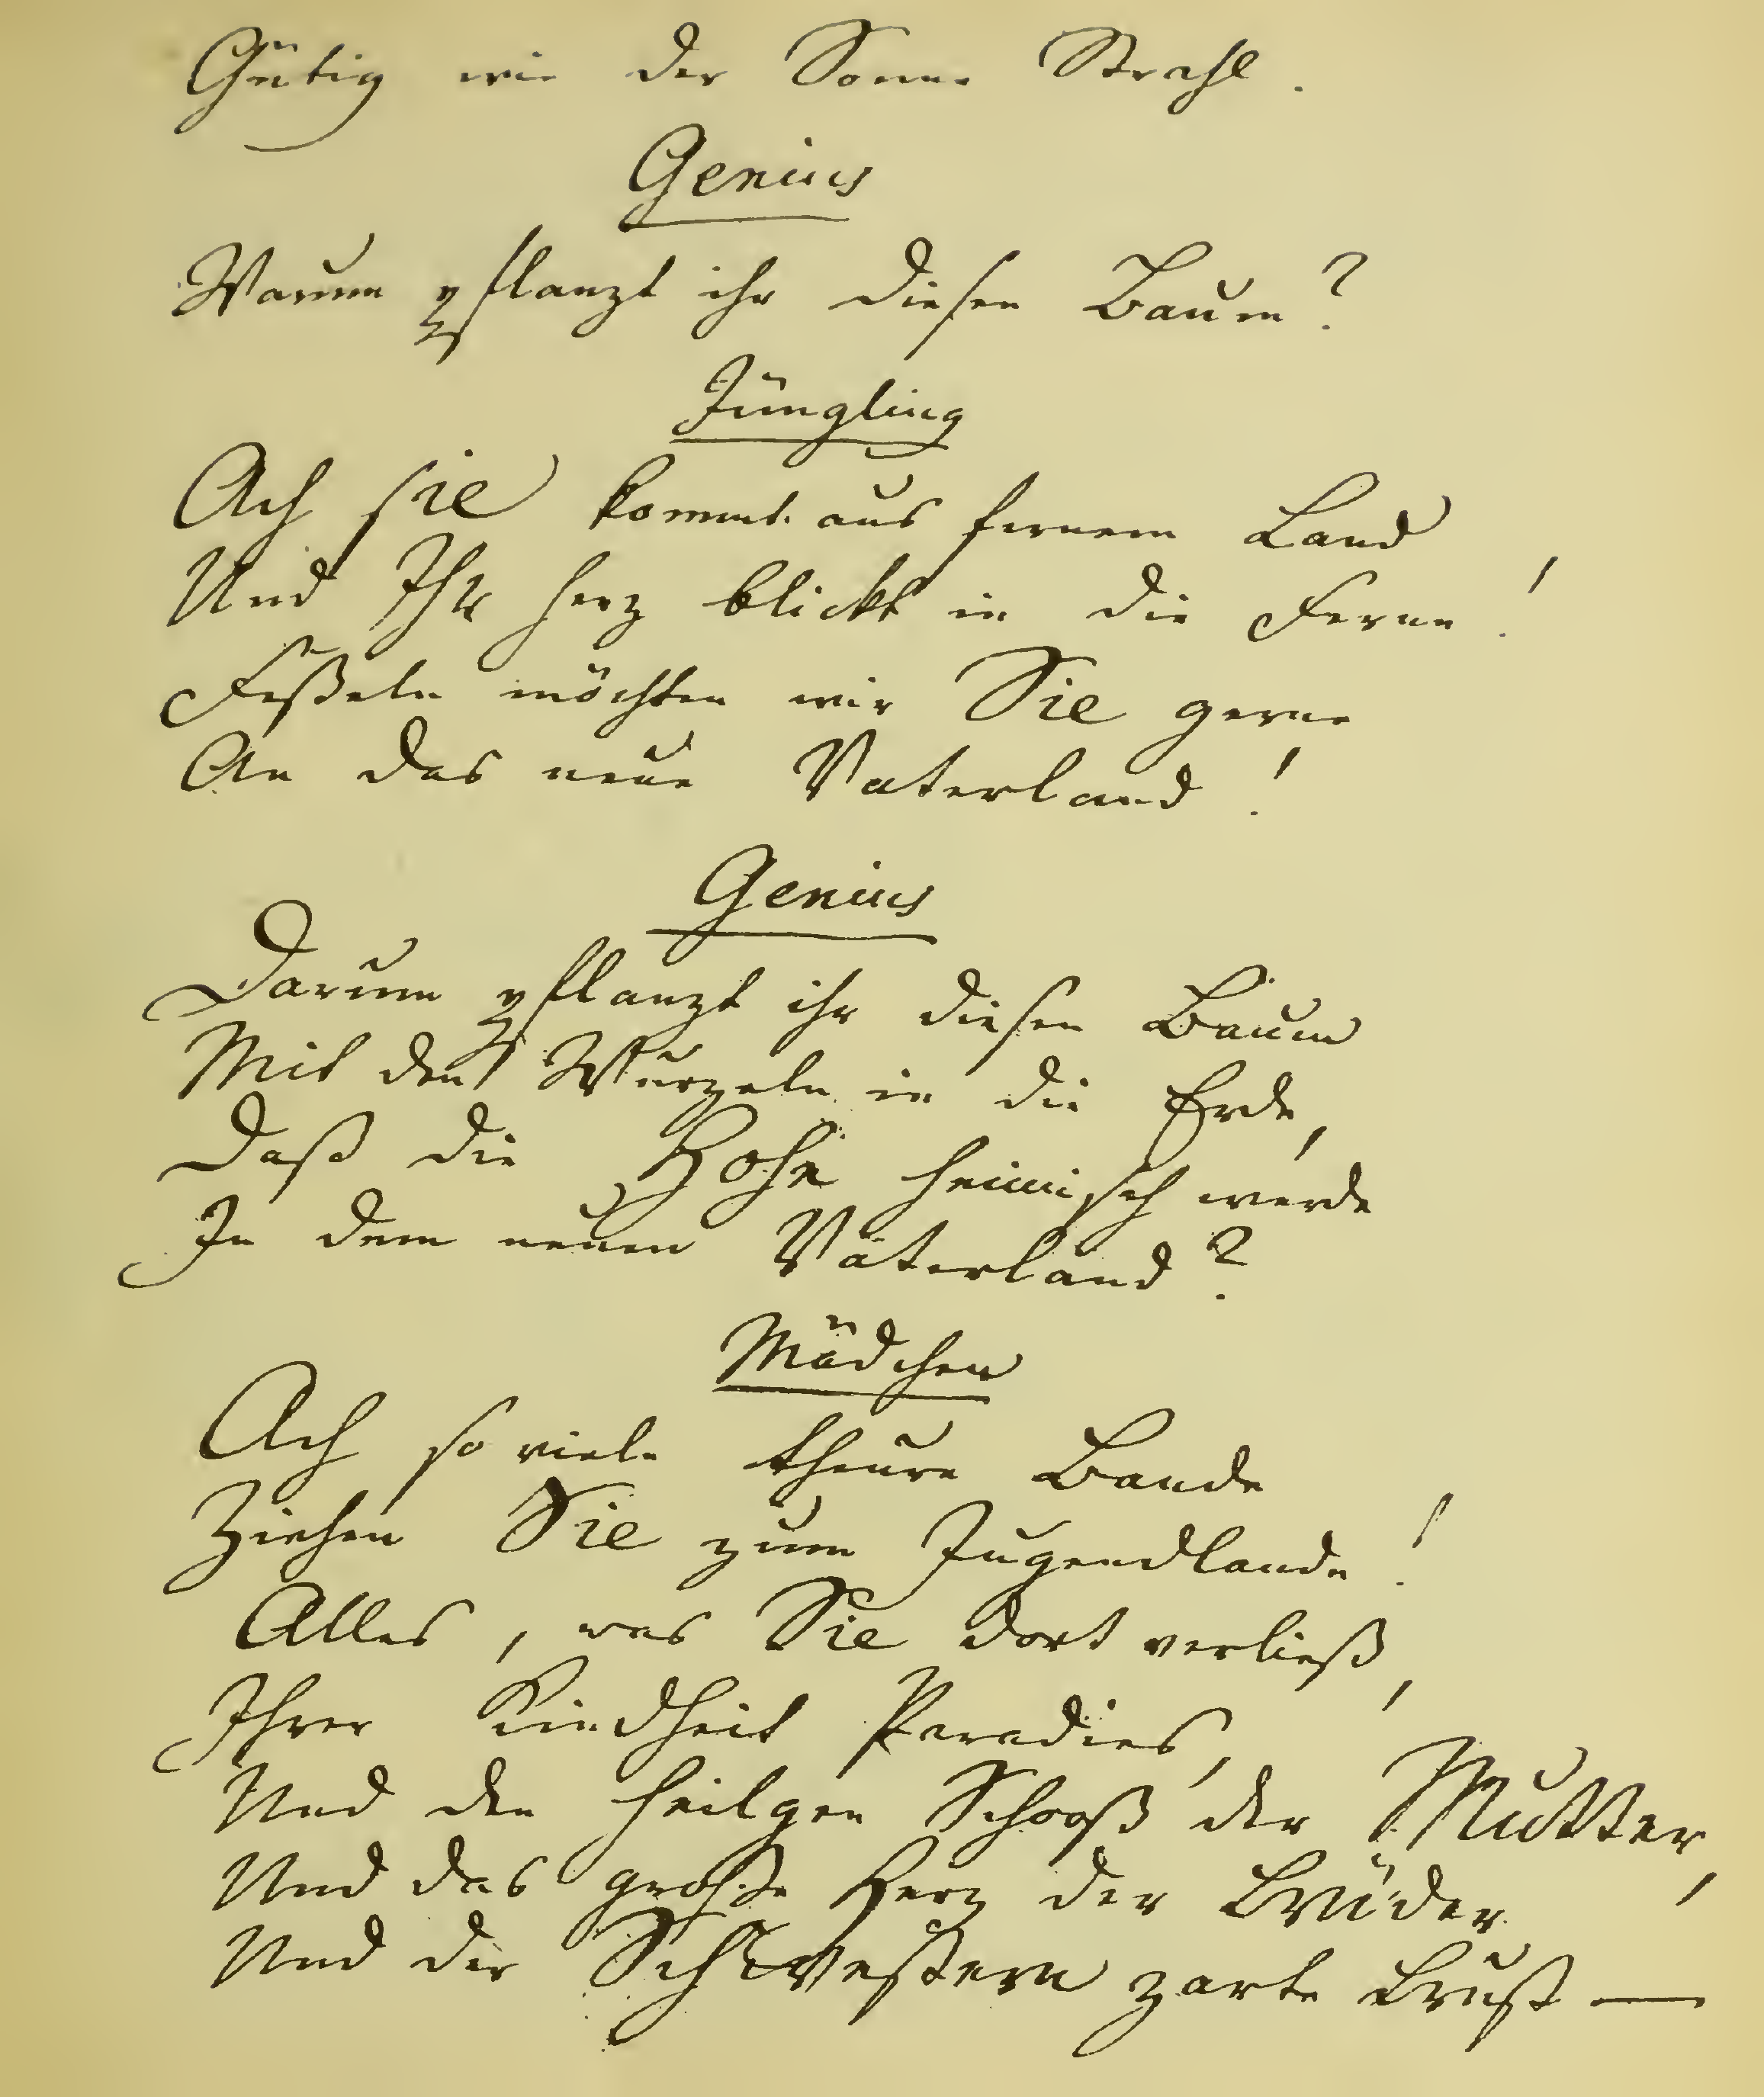 Gütig wie der Sonne Strahl.
Genius
Warum pflanzt ihr diesen Baum?
Jüngling
Ach sie kommt aus fernem Land
Und Ihr Herz blickt in die Ferne!
Feßeln möchten wir Sie gerne
An das neue Vaterland!
Genius
Darum pflanzt ihr diesen Baum
Mit den Wurzeln in die Erde,
Daß die Hohe heimisch werde
In dem neuen Vaterland?
Mädchen
Ach so viele theure Bande
Ziehen Sie zum Jugendlande!
Alles, was Sie dort verließ,
Ihrer Kindheit Paradies,
Und den heilgen Schooß der Mutter,
Und das große Herz der Brüder
Und der Schwestern zarte Brust —